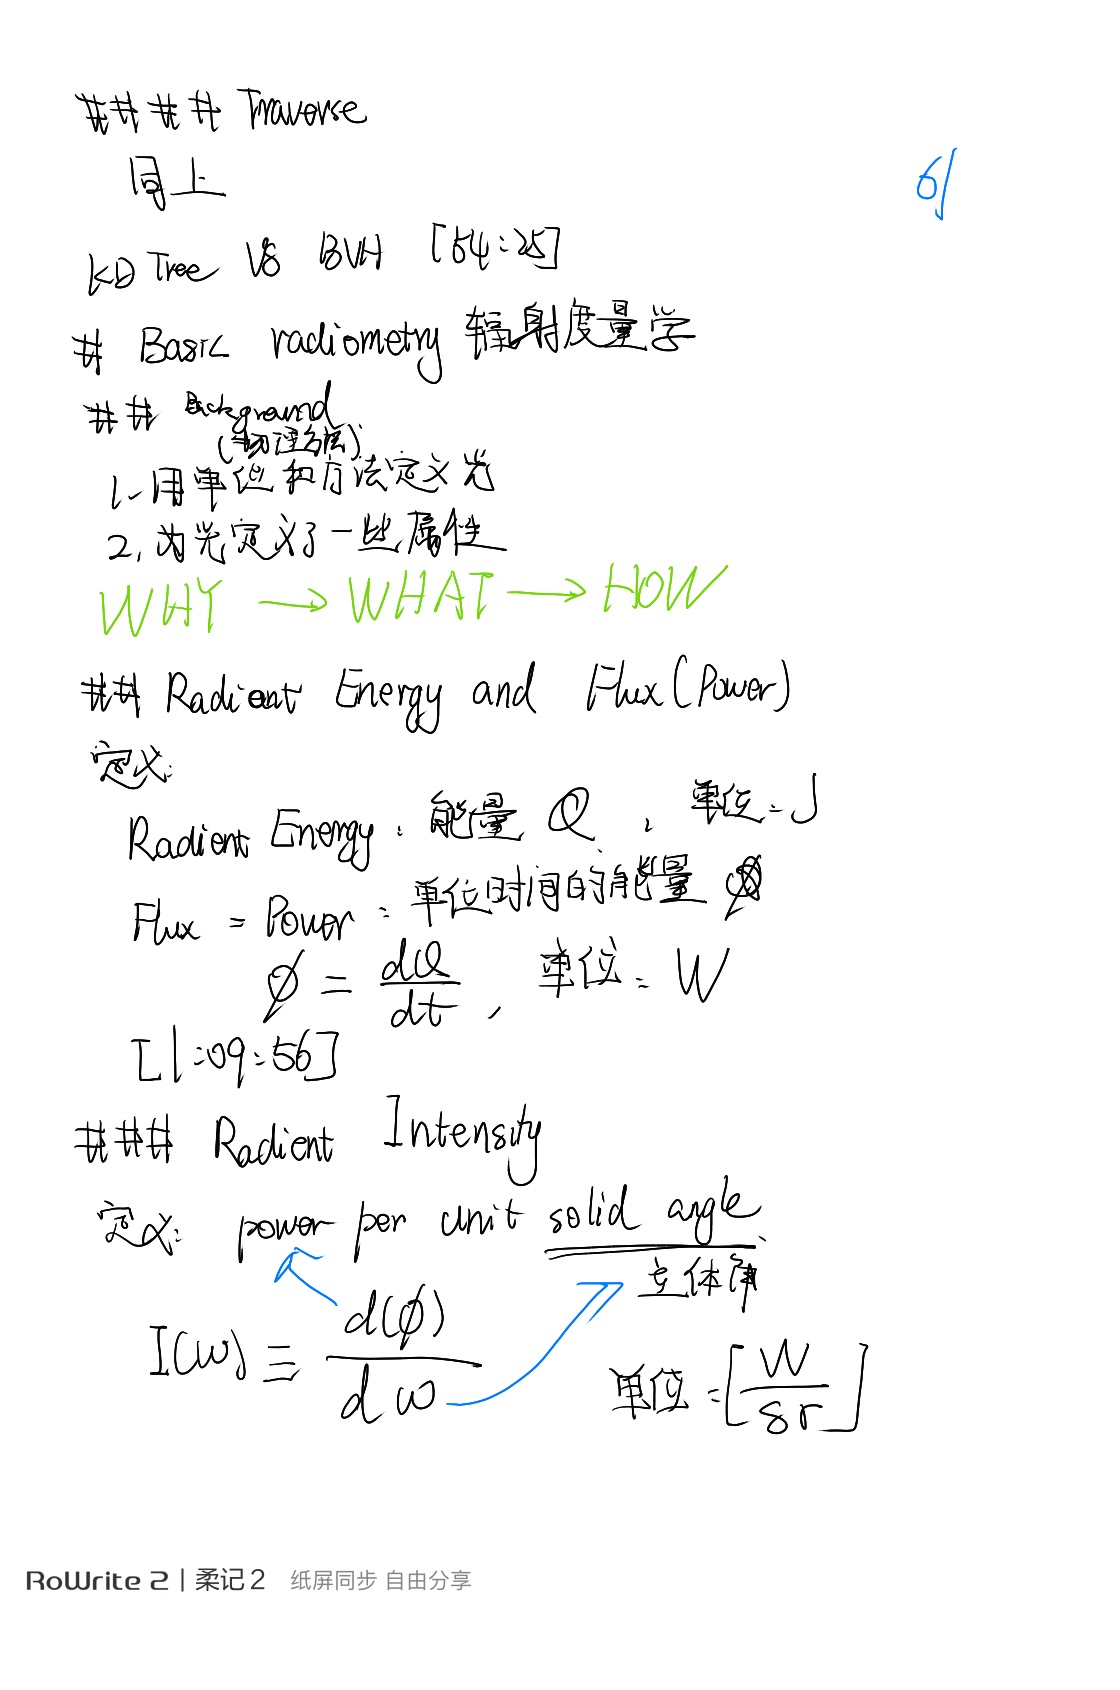 #### Traverse
同上
6/
KD Tree VS BVH [54:25]
# Basic radiometry 辐射度量学
## Background
(物理方法)
1. 用单位和方法定义光
2. 为光定义了一些属性
WHY → WHAT → HOW
## Radient Energy and Flux(Power)
定义:
Radient Energy: 能量 Q, 单位: J
Flux = Power: 单位时间的能量 ϕ
ϕ = dQ/dt, 单位: W
[1:09:56]
### Radient Intensity
定义: power per unit solid angle
立体角
I(ω) ≡ d(ϕ)/dω 单位: [W/sr]
RoWrite 2 | 柔记 2 纸屏同步 自由分享